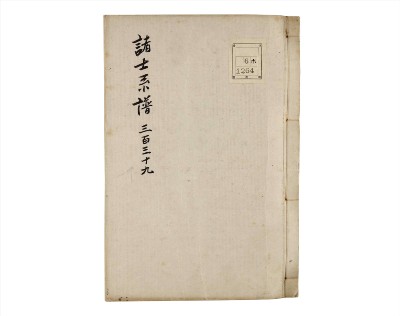 諸士系譜 三百三十九
1264